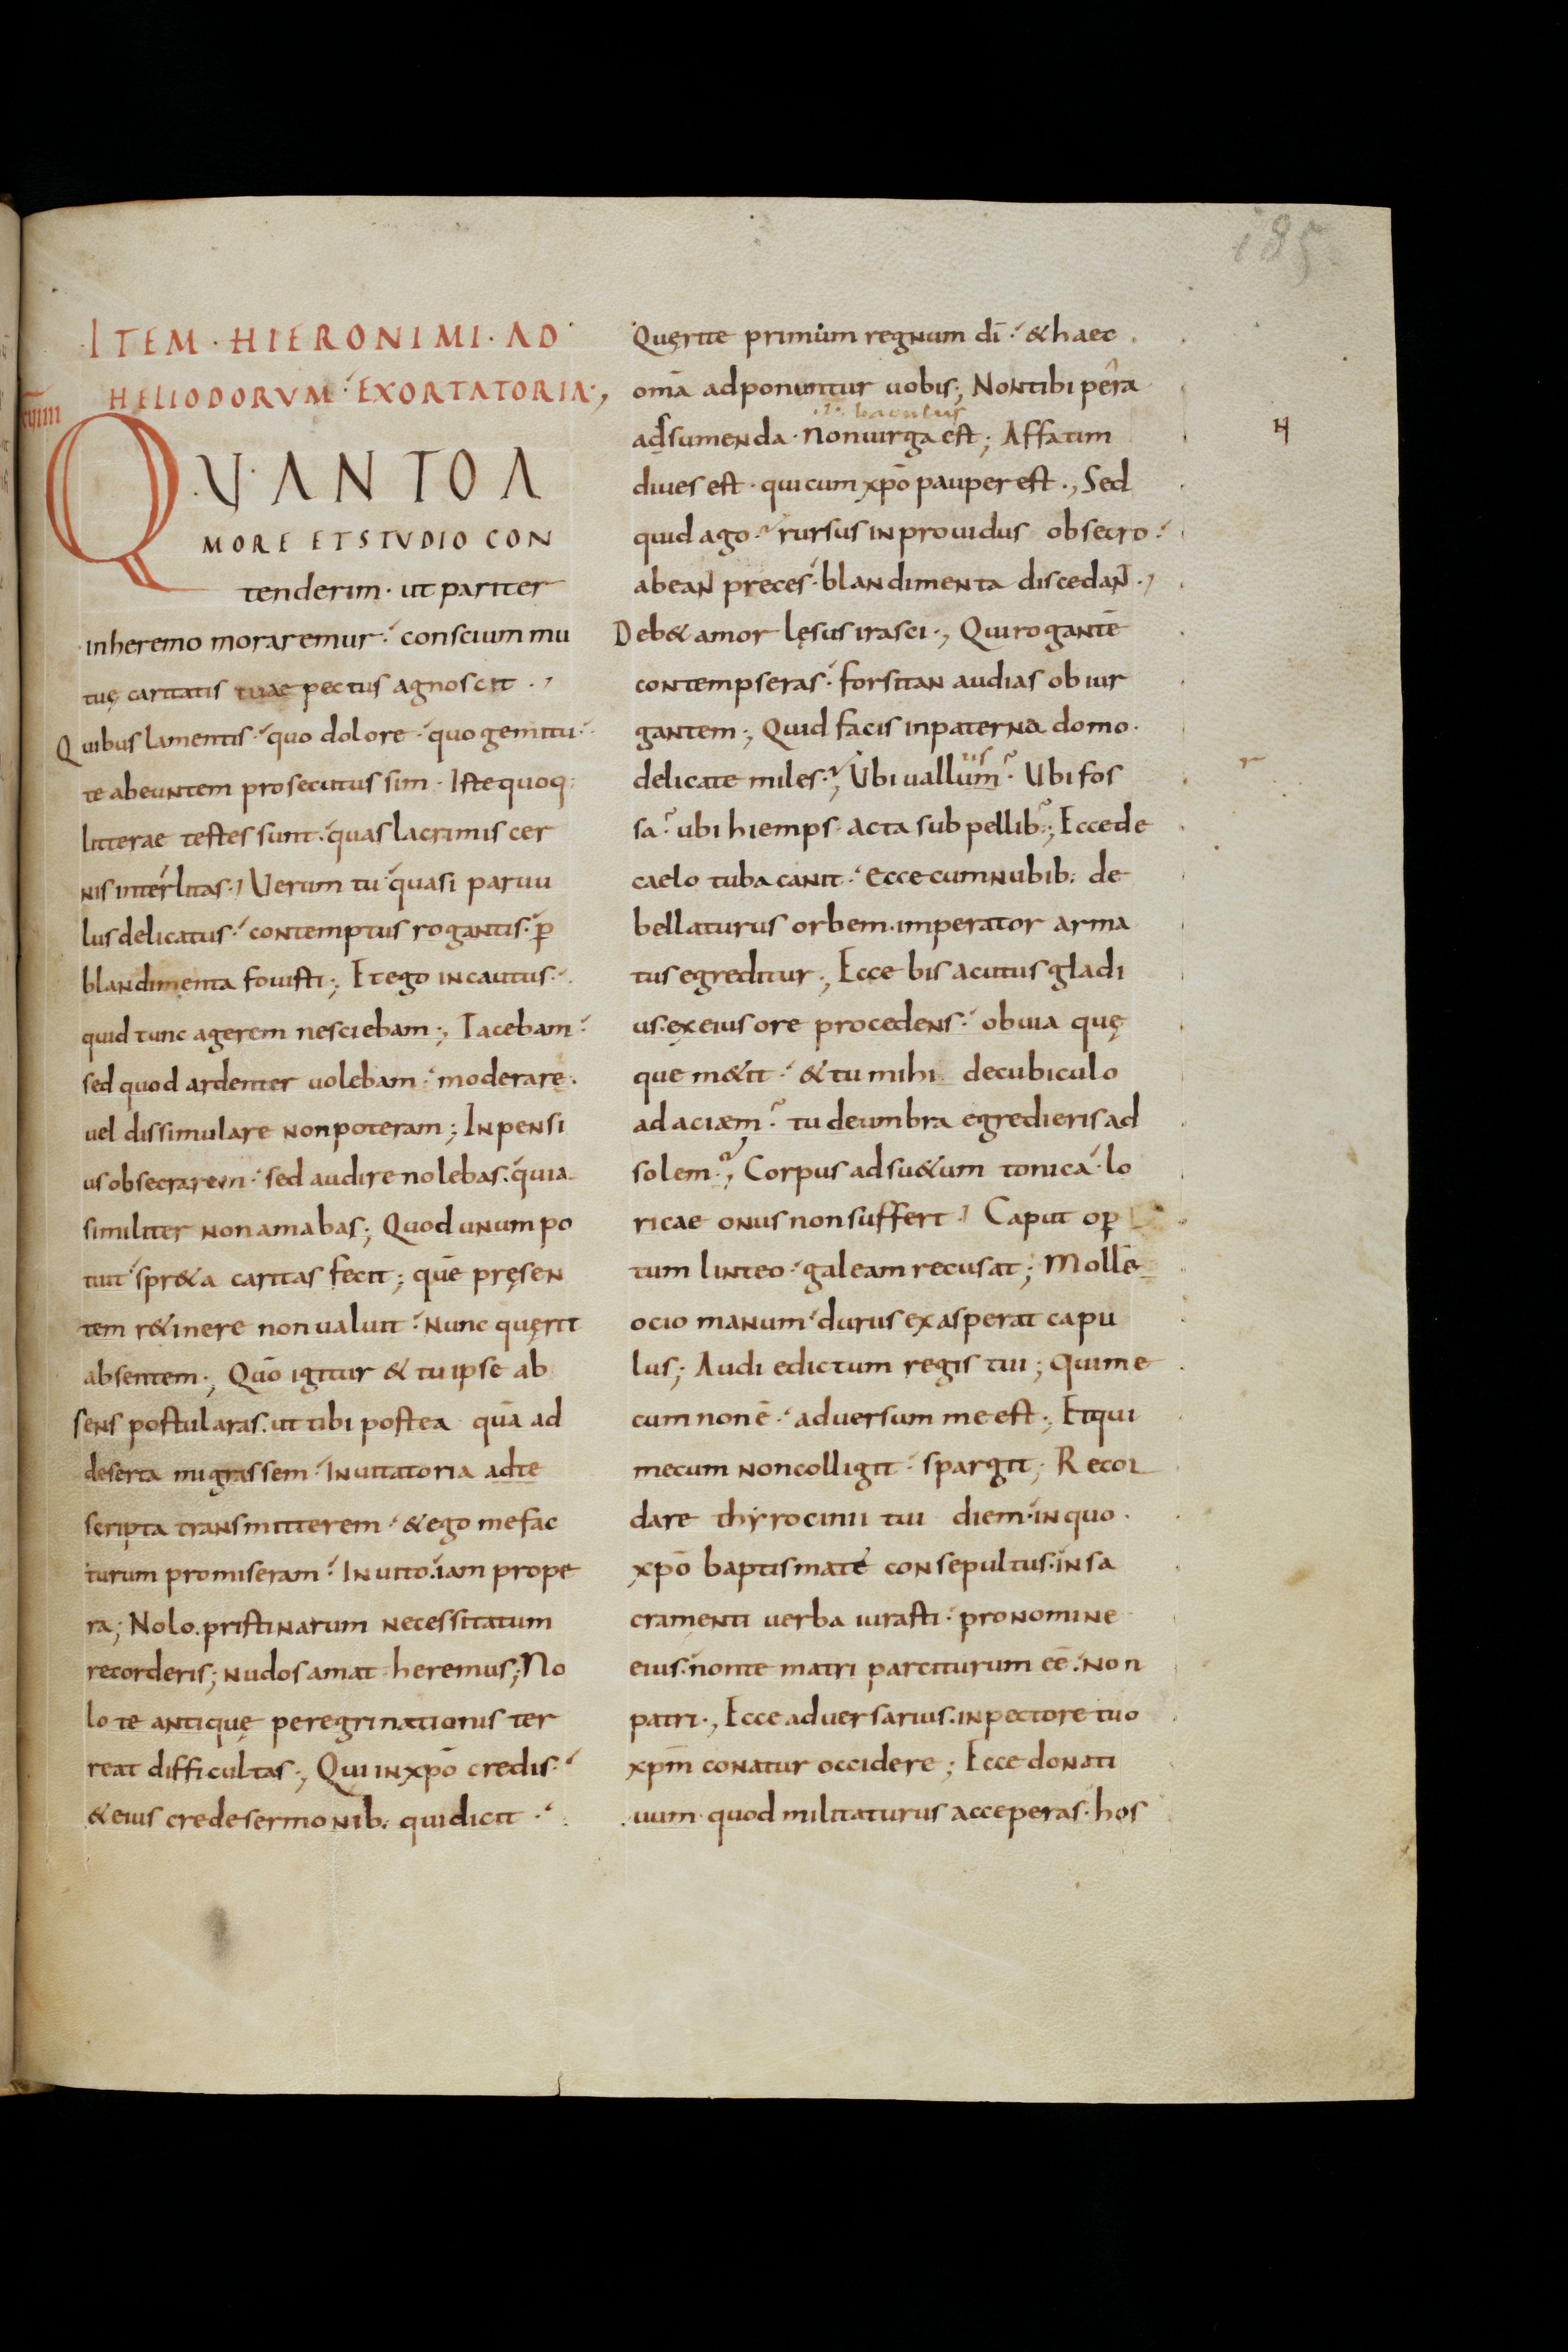 185
ITEM · HIERONIMI · AD
HELIODORVM · EXORTATORIA ·,
QVANTO A
MORE ET STVDIO CON
tenderim · ut pariter
inheremo moraremur · conscium mu
tuę caritatis tuae pectus agnoscit ·,
Quibus lamentis · quo dolore · quo gemitu ·
te abeuntem prosecutus sim · Iste quoq;
litterae testes sunt · quas lacrimis cer
nis interlitas ·, Uerum tu quasi paruu
lus delicatus · contemptus rogantis · p̄
blandimenta fouisti ·, Et ego incautus ·
quid tunc agerem nesciebam ·, Tacebam ·
sed quod ardenter uolebam · moderare ·
uel dissimulare non poteram ; Inpensi
us obsecrarem · sed audire nolebas · quia
similiter non amabas ; Quod unum po
tuit spr&a caritas fecit ; quē pręsen
tem r&inere non ualuit · Nunc quęrit
absentem ·, Quō igitur & tu ipse ab
sens postularas · ut tibi postea quā ad
deserta migrassem · Inuitatoria ad te
scripta transmitterem · & ego me fac
turum promiseram · Inuito · iam prope
ra ; Nolo · pristinarum necessitatum
recorderis ; nudos amat heremus ; No
lo te antiquę peregrinationis ter
reat difficultas ·, Qui in xp̄o credis ·
& eius crede sermonib; qui dicit ·
Quęrite primum regnum dī · & haec
om̄a adponuntur uobis ; Non tibi pera
.i. baculus
adsumenda · Non uirga est ; Affatim
diues est · qui cum xp̄o pauper est ·, Sed
quid ago · rursus inprouidus obsecro ·
abeant preces · blandimenta discedant ·,
Deb& amor lęsus irasci ·, Qui rogantē
contempseras · forsitan audias obiur
gantem ·, Quid facis in paterna domo ·
delicate miles ·, Ubi uallum · Ubi fos
us
sa · ubi hiemps acta sub pellib; ·, Ecce de
caelo tuba canit · Ecce cum nubib; de
bellaturus orbem · imperator arma
tus egreditur ·, Ecce bis acutus gladi
us · ex eius ore procedens · obuia quę
que m&it · & tu mihi de cubiculo
ad aciæm · tu de umbra egredieris ad
solem ·, Corpus adsu&um tonica · lo
ricae onus non suffert ·, Caput op̄
tum linteo · galeam recusat ; Mollē
ocio manum · durus exasperat capu
lus ; Audi edictum regis tui ; Qui me
cum non ē · aduersum me est ·, Et qui
mecum non colligit · spargit ; Recor
dare thyrocinii tui diem · in quo ·
xp̄o baptismate consepultus · in sa
cramenti uerba iurasti · pro nomine
eius · non te matri parciturum eē · Non
patri ·, Ecce aduersarius · in pectore tuo
xp̄m conatur occidere ; Ecce donati
uum · quod militaturus acceperas · hos